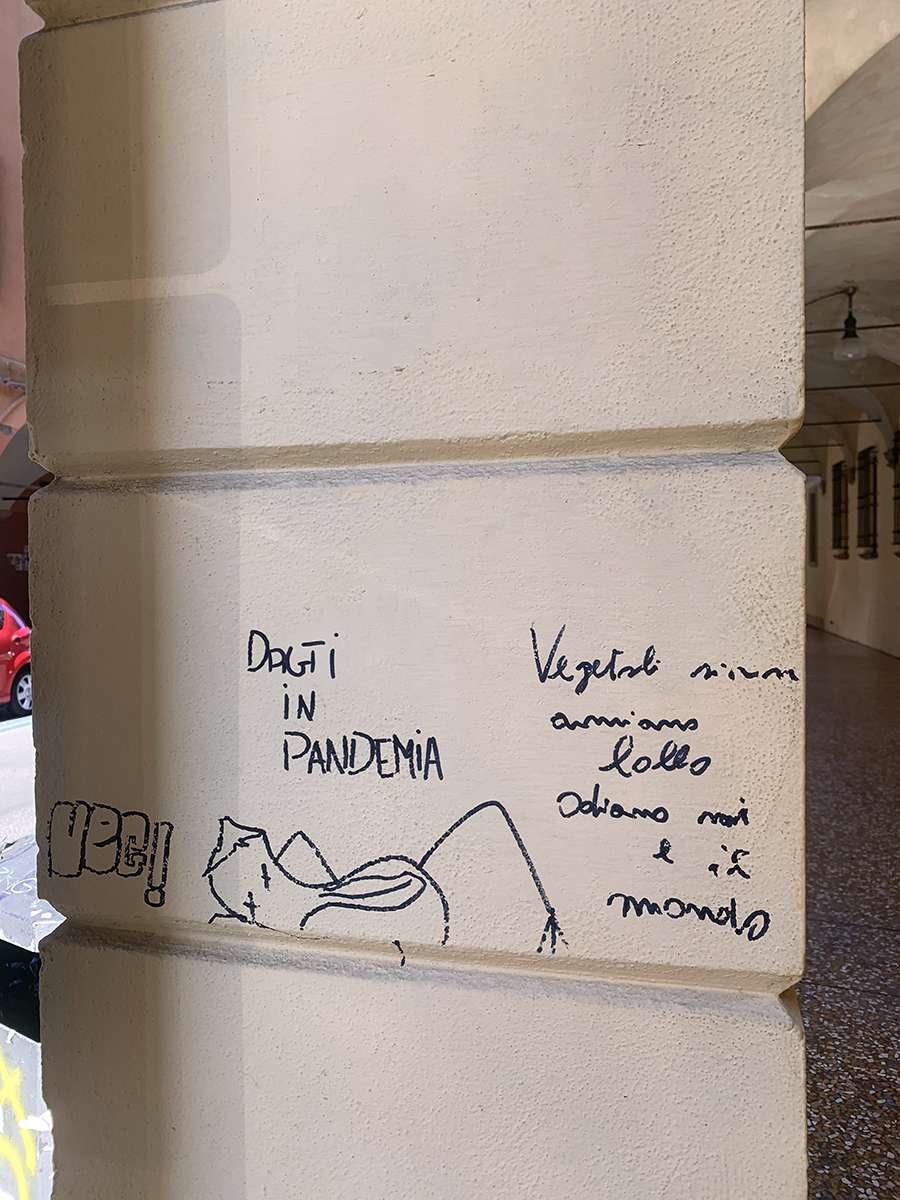 DAGTi
iN
PANDEMiA
Vegetali
amiamo
lollo
Odiamo noi
e il
mondo